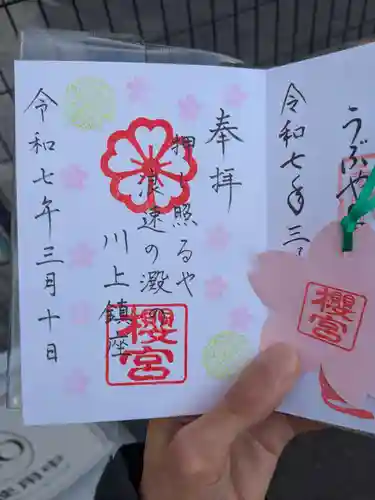 奉拝
押し照るや
浪速の澱の
川上鎮座
櫻宮
令和七年三月十日
うぶや
令和七年三
櫻宮
使用中